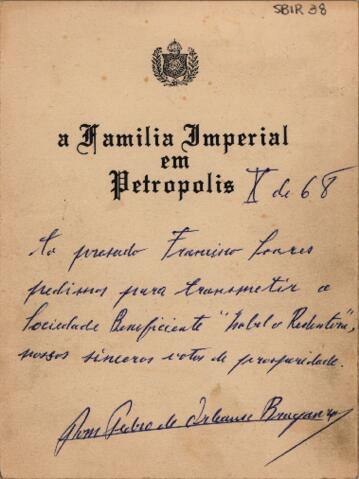 SBIR 38
a Familia Imperial
em
Petropolis X de 68
Ao presado Francisco Soares
pedimos para transmetir a
Sociedade Beneficiente "Isabel a Redentora",
nossos sinceros votos de prosperidade.
Dom Pedro de Orleans Bragança